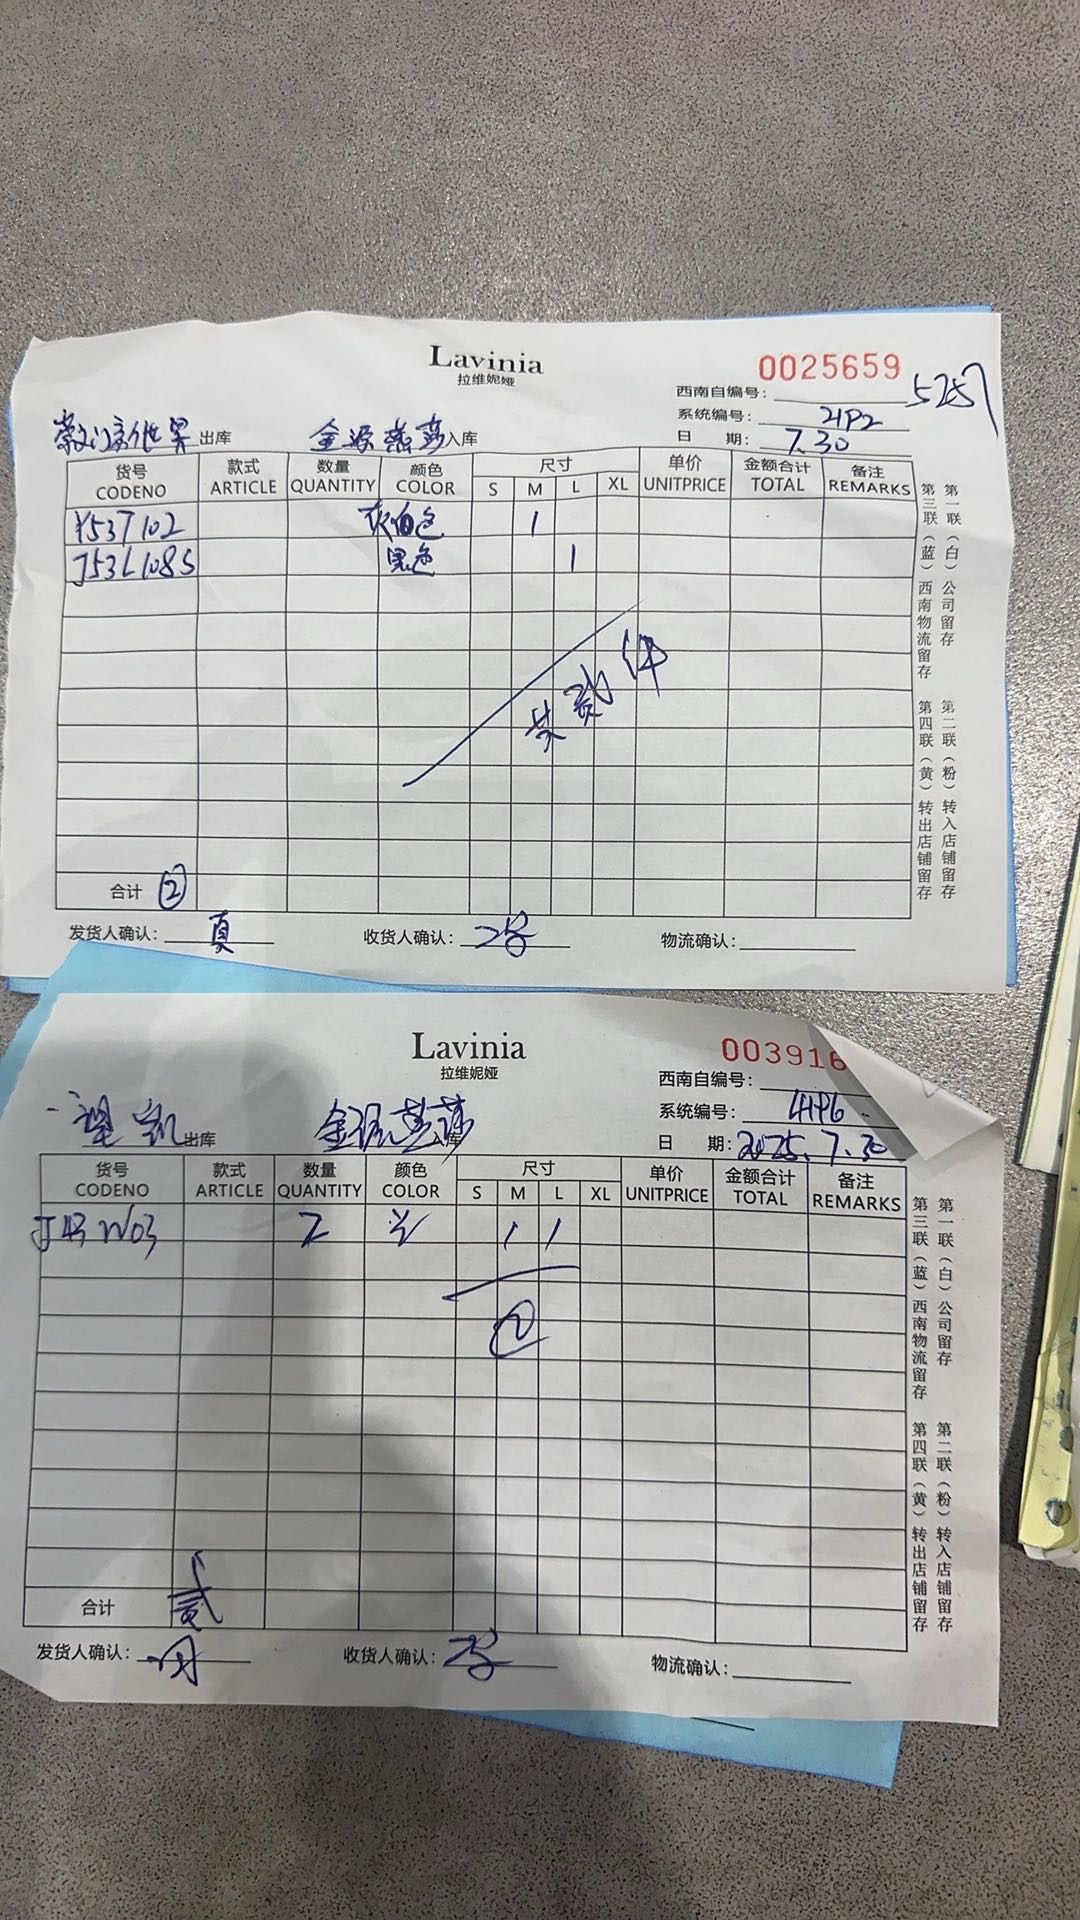 Lavinia
拉维妮娅
0025659
西南自编号: 5257
系统编号: 21P2
出库 金源燕莎 入库
日 期: 7.30
货号 款式 数量 颜色 尺寸 单价 金额合计 备注
CODENO ARTICLE QUANTITY COLOR S M L XL UNITPRICE TOTAL REMARKS
Y537102 灰白色 1
J53L108S 黑色 1
共贰件
合计 ②
发货人确认: 收货人确认: 物流确认:
第一联(白)公司留存 第二联(粉)转入店铺留存
第三联(蓝)西南物流留存 第四联(黄)转出店铺留存
Lavinia
拉维妮娅
003916
西南自编号:
系统编号: 41P6
出库 金源燕莎
日 期: 2025.7.30
货号 款式 数量 颜色 尺寸 单价 金额合计 备注
CODENO ARTICLE QUANTITY COLOR S M L XL UNITPRICE TOTAL REMARKS
J43W03 2 1 1
②
合计 贰
发货人确认: 收货人确认: 物流确认:
第一联(白)公司留存 第二联(粉)转入店铺留存
第三联(蓝)西南物流留存 第四联(黄)转出店铺留存